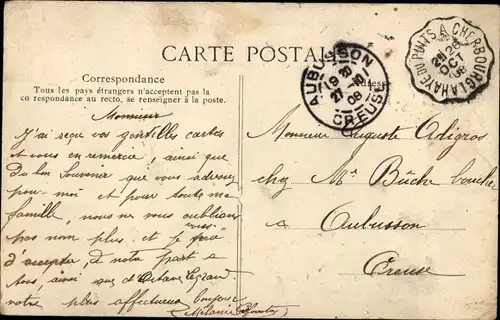 CARTE POSTALE
Correspondance
Tous les pays étrangers n'acceptent pas la
correspondance au recto, se renseigner à la poste.
Adresse
AUBUSSON
19 20
27-10
08
CREUSE
LA HAYE DU PUITS A CHERBOURG
26
OCT
08
Monsieur
J'ai reçu vos gentilles cartes
et vous en remercie, ainsi que
du bon Souvenir que vous adressez
pour moi et pour toute ma
famille, nous ne vous oublions
pas non plus, et je vous prie
d'accepter, de notre part à
tous, ainsi que d'Octave Legrand
notre plus affectueux bonjour
Mélanie
Monsieur Auguste Adigros
chez Mr Bûche boucher
à Aubusson
Creuse